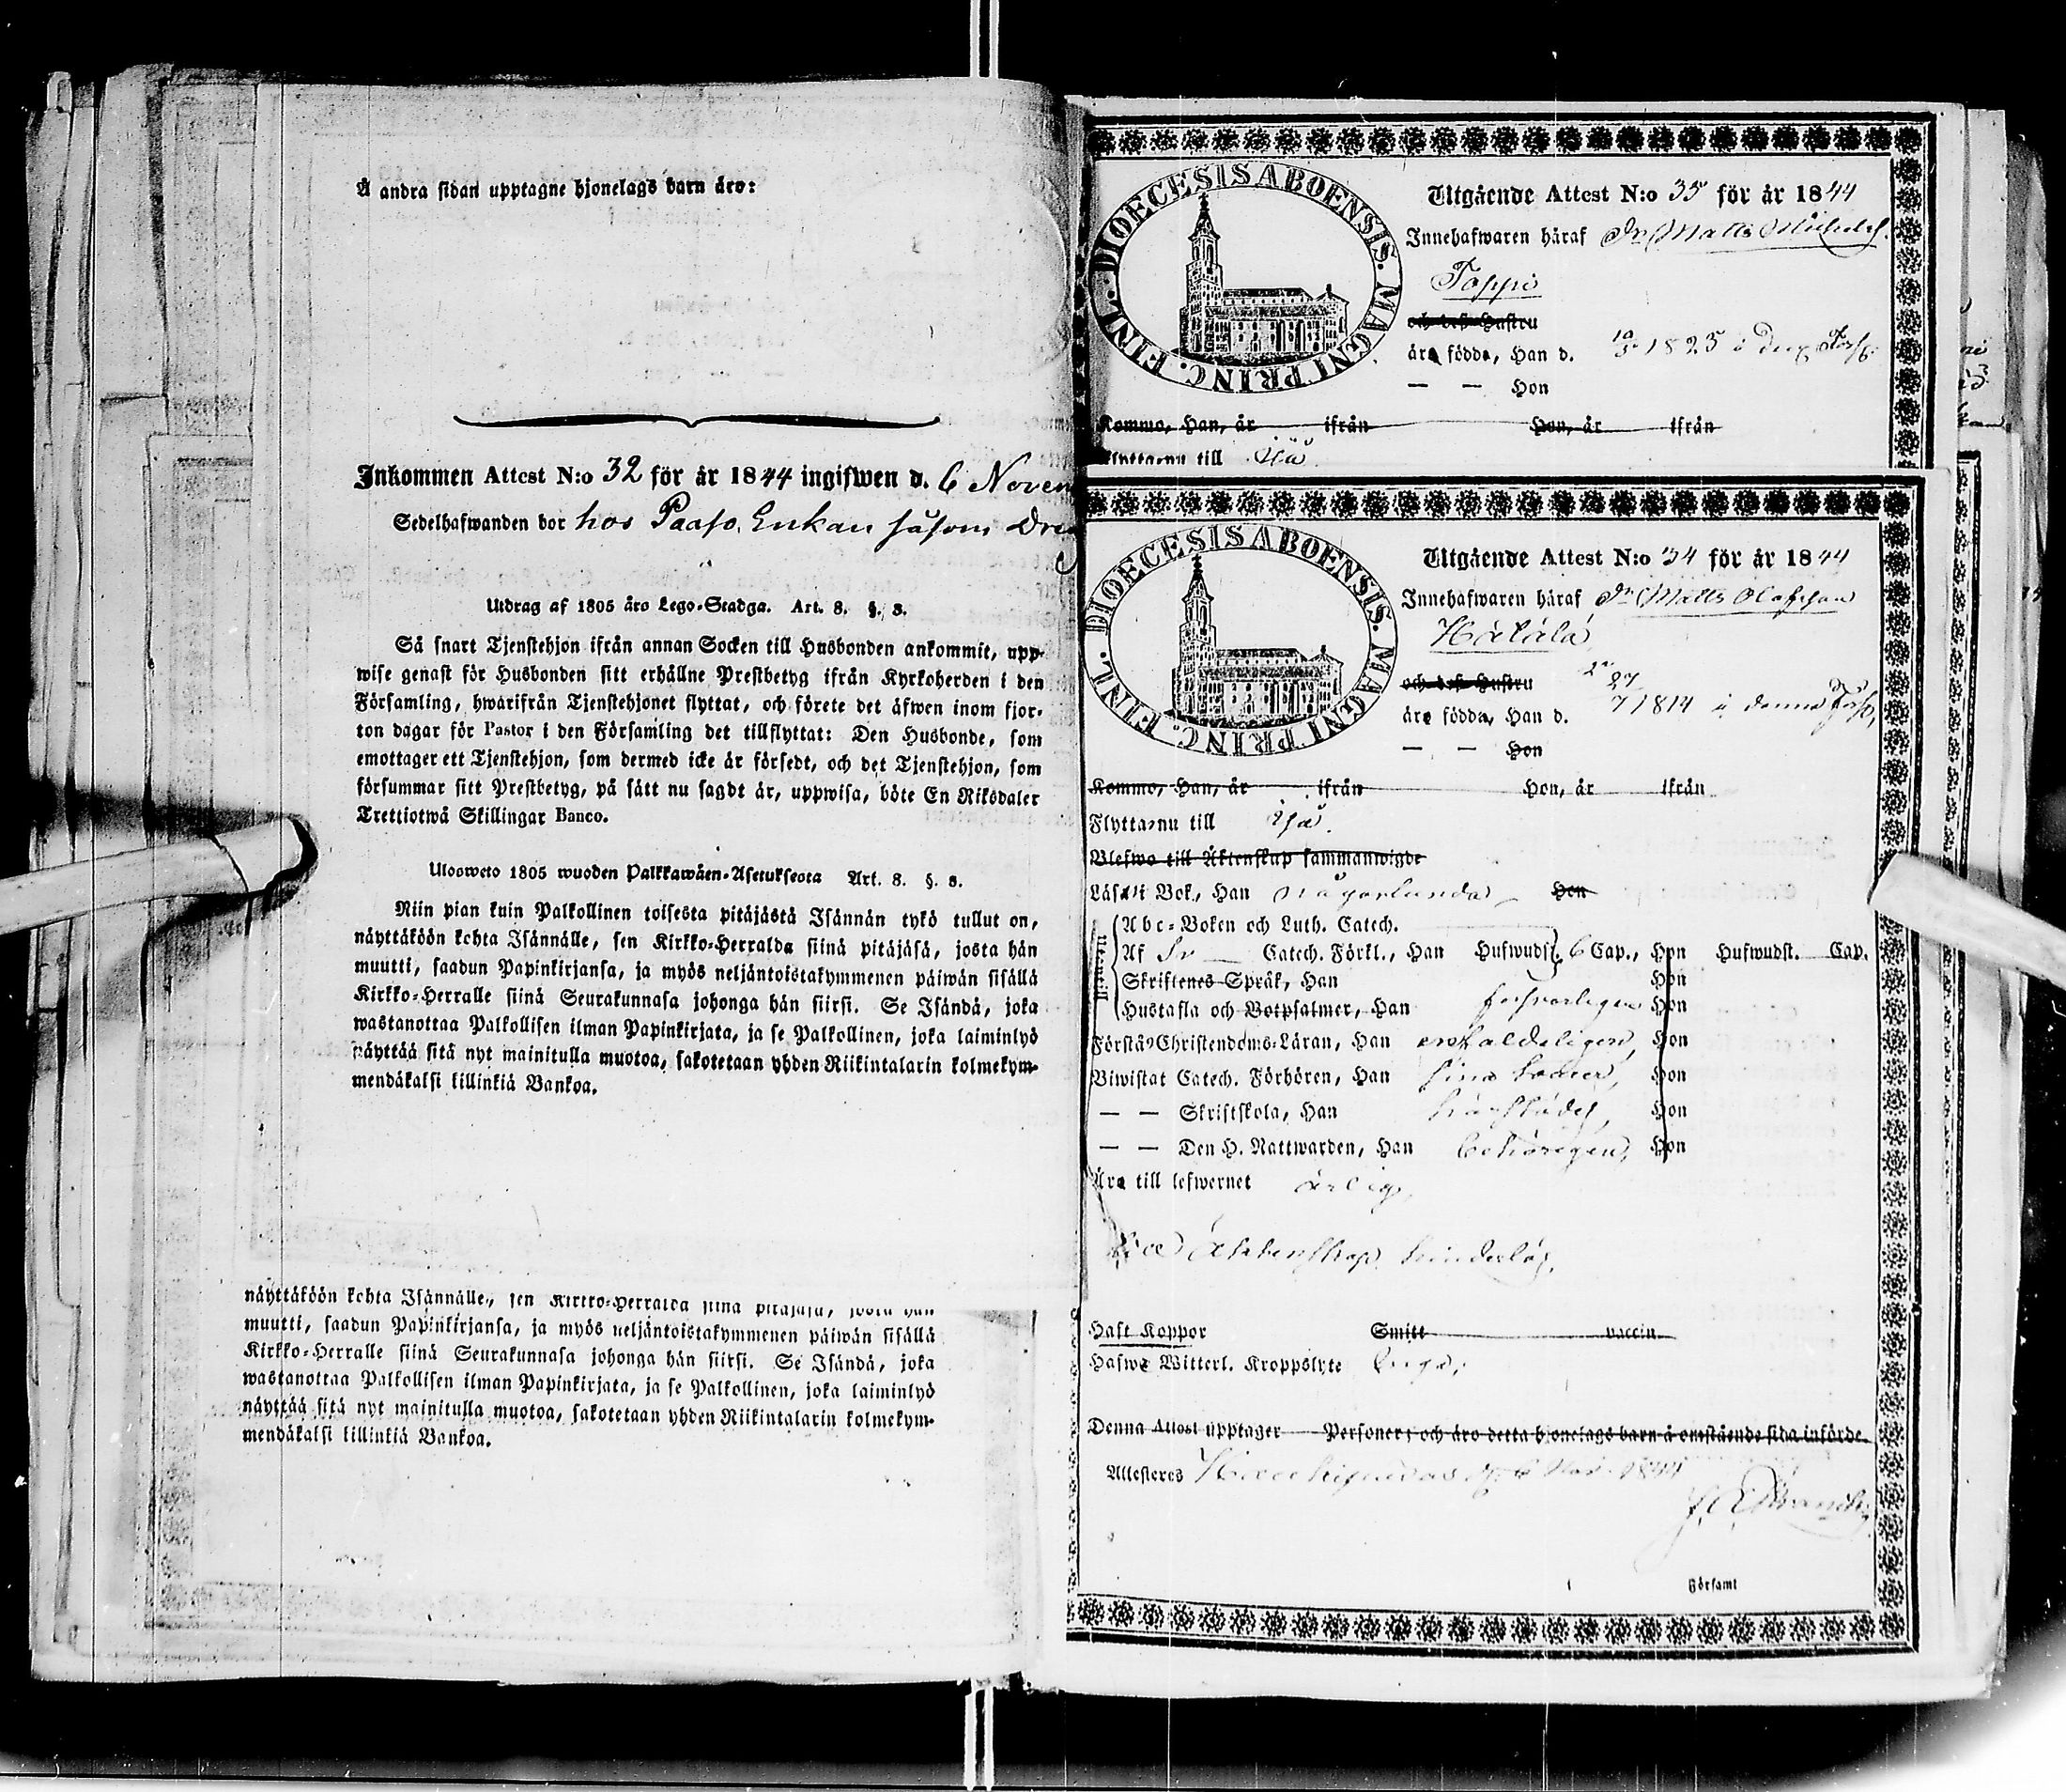 Å andra sidan upptagne hjonelags barn äro:
Inkommen Attest N:o 32 för år 1844 ingifwen d. 6 Novem
Sedelhafwanden bor hos Paaso Enkan såsom Dreg
Utdrag af 1805 års Lego-Stadga. Art. 8. §. 8.
Så snart Tjenstehjon ifrån annan Socken till Husbonden ankommit, upp-
wise genast för Husbonden sitt erhållne Prestbetyg ifrån Kyrkoherden i den
Församling, hwarifrån Tjenstehjonet flyttat, och förete det äfwen inom fjor-
ton dagar för Pastor i den Församling det tillflyttat: Den Husbonde, som
emottager ett Tjenstehjon, som dermed icke är försedt, och det Tjenstehjon, som
försummar sitt Prestbetyg, på sätt nu sagdt är, uppwisa, böte En Riksdaler
Trettiotwå Skillingar Banco.
Ulosweto 1805 wuoden Palkkawäen-Asetuksesta Art. 8. §. 8.
Niin pian kuin Palkollinen toisesta pitäjästä Isännän tykö tullut on,
näyttäköön kohta Isännälle, sen Kirkko-Herralda siinä pitäjäsä, josta hän
muutti, saadun Papinkirjansa, ja myös neljäntoistakymmenen päiwän sisällä
Kirkko-Herralle siinä Seurakunnasa johonga hän siirsi. Se Isändä, joka
wastanottaa Palkollisen ilman Papinkirjata, ja se Palkollinen, joka laiminlyö
näyttää sitä nyt mainitulla muotoa, sakotetaan yhden Riikintalarin kolmekym-
mendäkaksi killinkiä Bankoa.
näyttäköön kohta Isännälle, sen Kirkko-Herralda siinä pitäjäsä, josta hän
muutti, saadun Papinkirjansa, ja myös neljäntoistakymmenen päiwän sisällä
Kirkko-Herralle siinä Seurakunnasa johonga hän siirsi. Se Isändä, joka
wastanottaa Palkollisen ilman Papinkirjata, ja se Palkollinen, joka laiminlyö
näyttää sitä nyt mainitulla muotoa, sakotetaan yhden Riikintalarin kolmekym-
mendäkaksi killinkiä Bankoa.
DIOECESIS ABOENSIS. MAGNI PRINC. FINL.
Utgående Attest N:o 35 för år 1844
Innehafwaren häraf Dr Matts Michels.
Toppi
och dess Hustru
äro födde, Han d. 10/5 1825 i Förs.
— — Hon
Kommo, Han, år ifrån Hon, år ifrån
Flytta nu till
DIOECESIS ABOENSIS. MAGNI PRINC. FINL.
Utgående Attest N:o 34 för år 1844
Innehafwaren häraf Dr Matts Olofsson
Hälälä
och dess Hustru
äro födde, Han d. 27/7 1814 i denna Förs.
— — Hon
Kommo, Han, år ifrån Hon, år ifrån
Flytta nu till
Blefwo till Äktenskap sammanwigde
Läsa i Bok, Han någorlunda Hon
Utantill
Abc-Boken och Luth. Catech.
Af Sv Catech. Förkl., Han Hufwudst. 6 Cap., Hon Hufwudst. Cap.
Skriftenes Språk, Han Hon
Hustafla och Botpsalmer, Han försvarligen Hon
Förstå Christendoms-Läran, Han enfaldeligen, Hon
Biwistat Catech. Förhören, Han Hon
— — Skriftskola, Han Hon
— — Den H. Nattwarden, Han behörigen, Hon
Äro till lefwernet ärlig,
Äktenskap hinderlös,
Haft Koppor Smitt vaccin
Hafwa Witterl. Kroppslyte inga,
Denna Attest upptager Personer; och äro detta hjonelags barn å omstående sida införde.
Attesteras d. 6 Nov. 1844
Församl